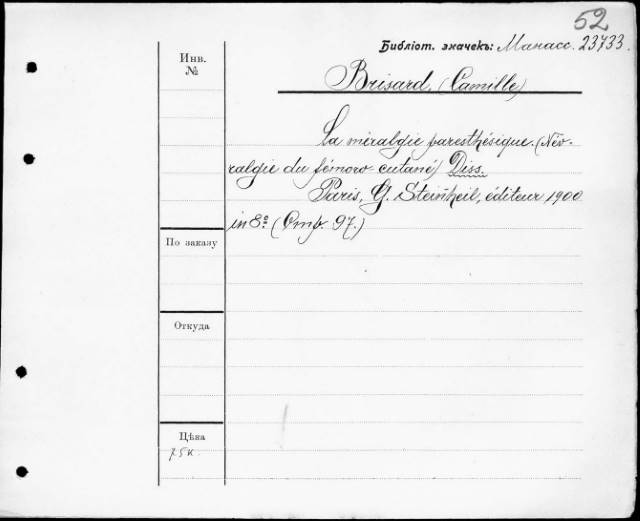 52
Библіот. значекъ: Манасс. 23733.
Инв.
№
Brisard, (Camille)
La méralgie paresthésique. (Név-
ralgie du fémoro-cutané) Diss.
Paris, G. Steinheil, éditeur 1900
in 8º (Стр. 97.)
По заказу
Откуда
Цѣна
75 к.